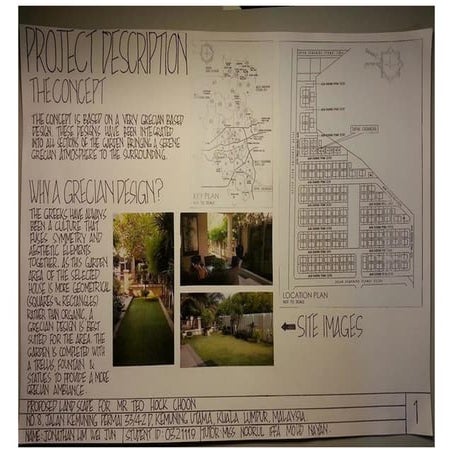 PROJECT DESCRIPTION
THE CONCEPT
THE CONCEPT IS BASED ON A VERY GRECIAN BASED
DESIGN. THESE DESIGNS HAVE BEEN INTEGRATED
INTO ALL SECTIONS OF THE GARDEN BRINGING A SERENE
GRECIAN ATMOSPHERE TO THE SURROUNDING.
WHY A GRECIAN DESIGN?
THE GREEKS HAVE ALWAYS
BEEN A CULTURE THAT
FUSES SYMMETRY AND
AESTHETIC ELEMENTS
TOGETHER. AS THIS GARDEN
AREA OF THE SELECTED
HOUSE IS MORE GEOMETRICAL
(SQUARES & RECTANGLES)
RATHER THAN ORGANIC, A
GRECIAN DESIGN IS BEST
SUITED FOR THE AREA. THE
GARDEN IS COMPLETED WITH
A TRELLIS, FOUNTAIN &
STATUES TO PROVIDE A MORE
GRECIAN AMBIANCE.
KEY PLAN
NOT TO SCALE
LOCATION PLAN
NOT TO SCALE
SITE IMAGES
PROPOSED LANDSCAPE FOR MR TEO HOCK CHOON
NO. 8, JALAN KEMUNING PERMAI 33/42 D, KEMUNING UTAMA, KUALA LUMPUR, MALAYSIA
NAME: JONATHAN LIM WEI TUN STUDENT ID: 0321119 TUTOR: MISS NOORUL IFFA MOHD NAYAN
1